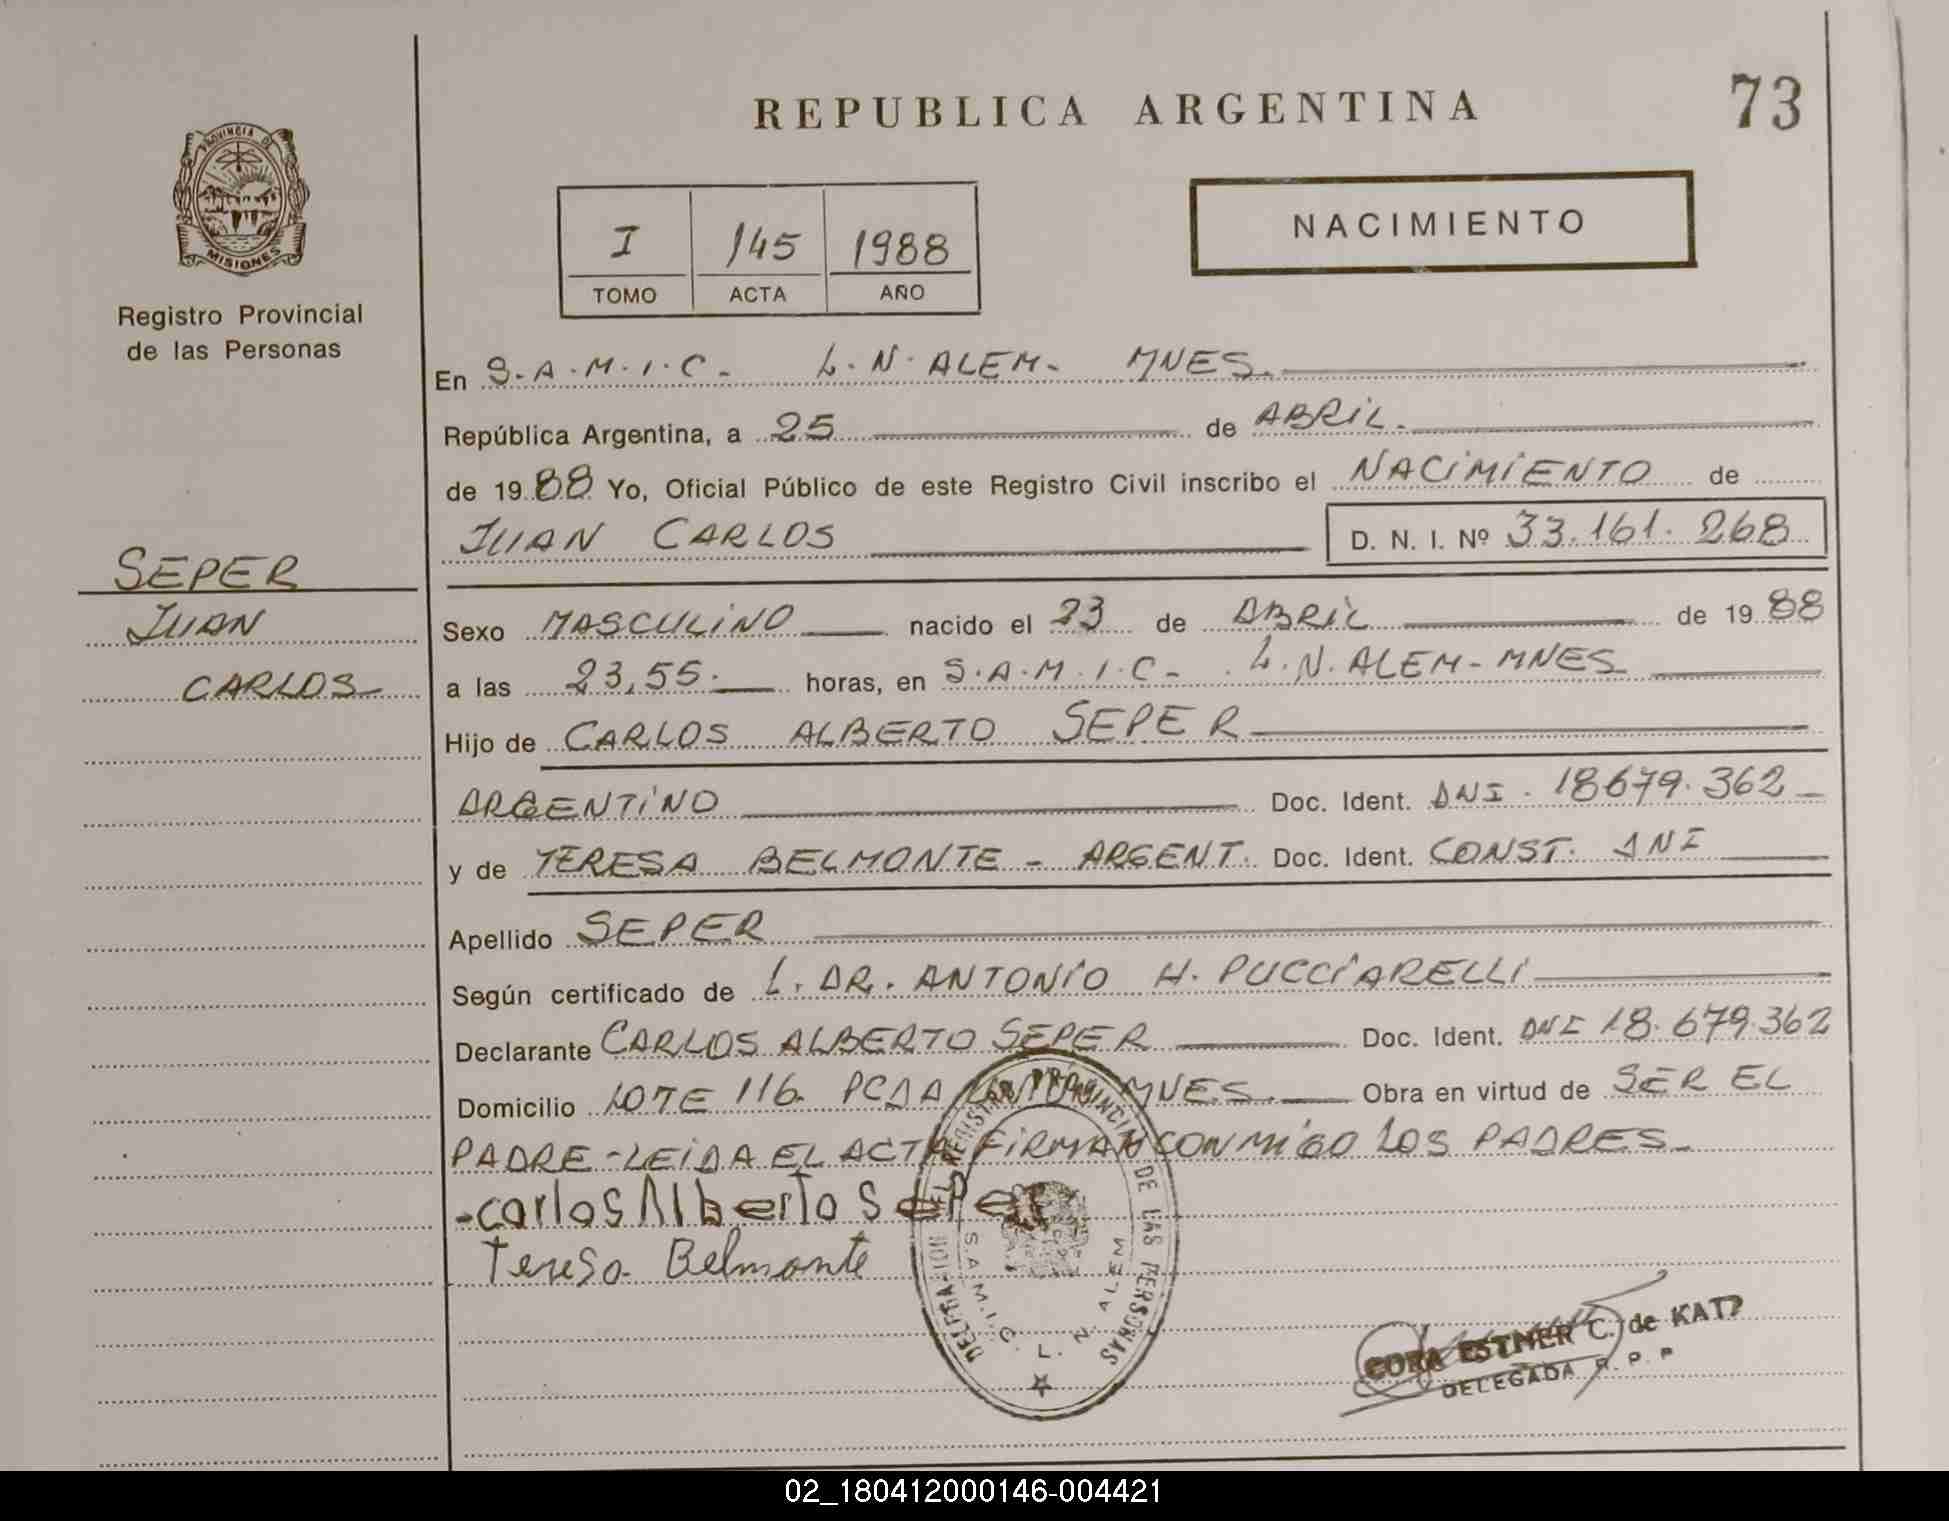 REPUBLICA ARGENTINA
73
PROVINCIA DE
MISIONES
Registro Provincial
de las Personas
I 145 1988
TOMO ACTA AÑO
NACIMIENTO
En S.A.M.I.C- L.N. ALEM- MNES.
República Argentina, a 25 de ABRIL.
de 1988 Yo, Oficial Público de este Registro Civil inscribo el NACIMIENTO de
JUAN CARLOS D. N. I. Nº 33.161.268
SEPER
JUAN
CARLOS
Sexo MASCULINO nacido el 23 de ABRIL de 1988
a las 23,55. horas, en S.A.M.I.C- L.N. ALEM-MNES
Hijo de CARLOS ALBERTO SEPER
ARGENTINO Doc. Ident. DNI. 18679.362
y de TERESA BELMONTE - ARGENT. Doc. Ident. CONST. DNI
Apellido SEPER
Según certificado de L. DR. ANTONIO H. PUCCIARELLI
Declarante CARLOS ALBERTO SEPER Doc. Ident. DNI 18.679.362
Domicilio LOTE 116. PCDA MNES. Obra en virtud de SER EL
PADRE-LEIDA EL ACTA FIRMAN CONMIGO LOS PADRES-
-carlos Alberto Seper
Teresa Belmonte
REGISTRO PROVINCIAL DE LAS PERSONAS
S.A.M.I.C. L. N. ALEM
CORA ESTHER C. de KATZ
DELEGADA R. P. P
02_180412000146-004421